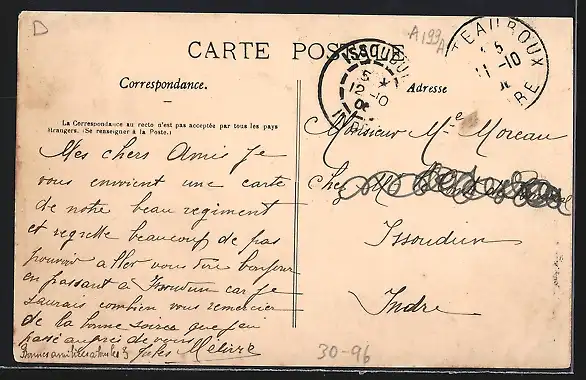 D
A 199 A
CARTE POSTALE
Correspondance.
Adresse
La Correspondance au recto n'est pas acceptée par tous les pays
étrangers. (Se renseigner à la Poste.)
ISSOUDUN
5 *
12 -10
TEAUROUX
11 -10
RE
Mes chers Amis Je
vous envoient une carte
de notre beau regiment
et regrette beaucoup de pas
pouvoir aller vous dire bonjour
en passant a Issoudun car je
saurais combien vous remercier
de la bonne soirée que j'eu
passé auprès de vous
Jules
Monsieur Mce Moreau
chez M
Issoudun
Indre
30-96